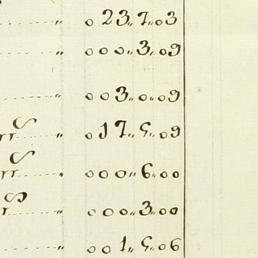 023,,7,,03
" 000,,3,,09
" 003,,0,,09
" 017,,5,,09
" 000,,6,,00
" 000,,3,,00
" 001,,5,,06